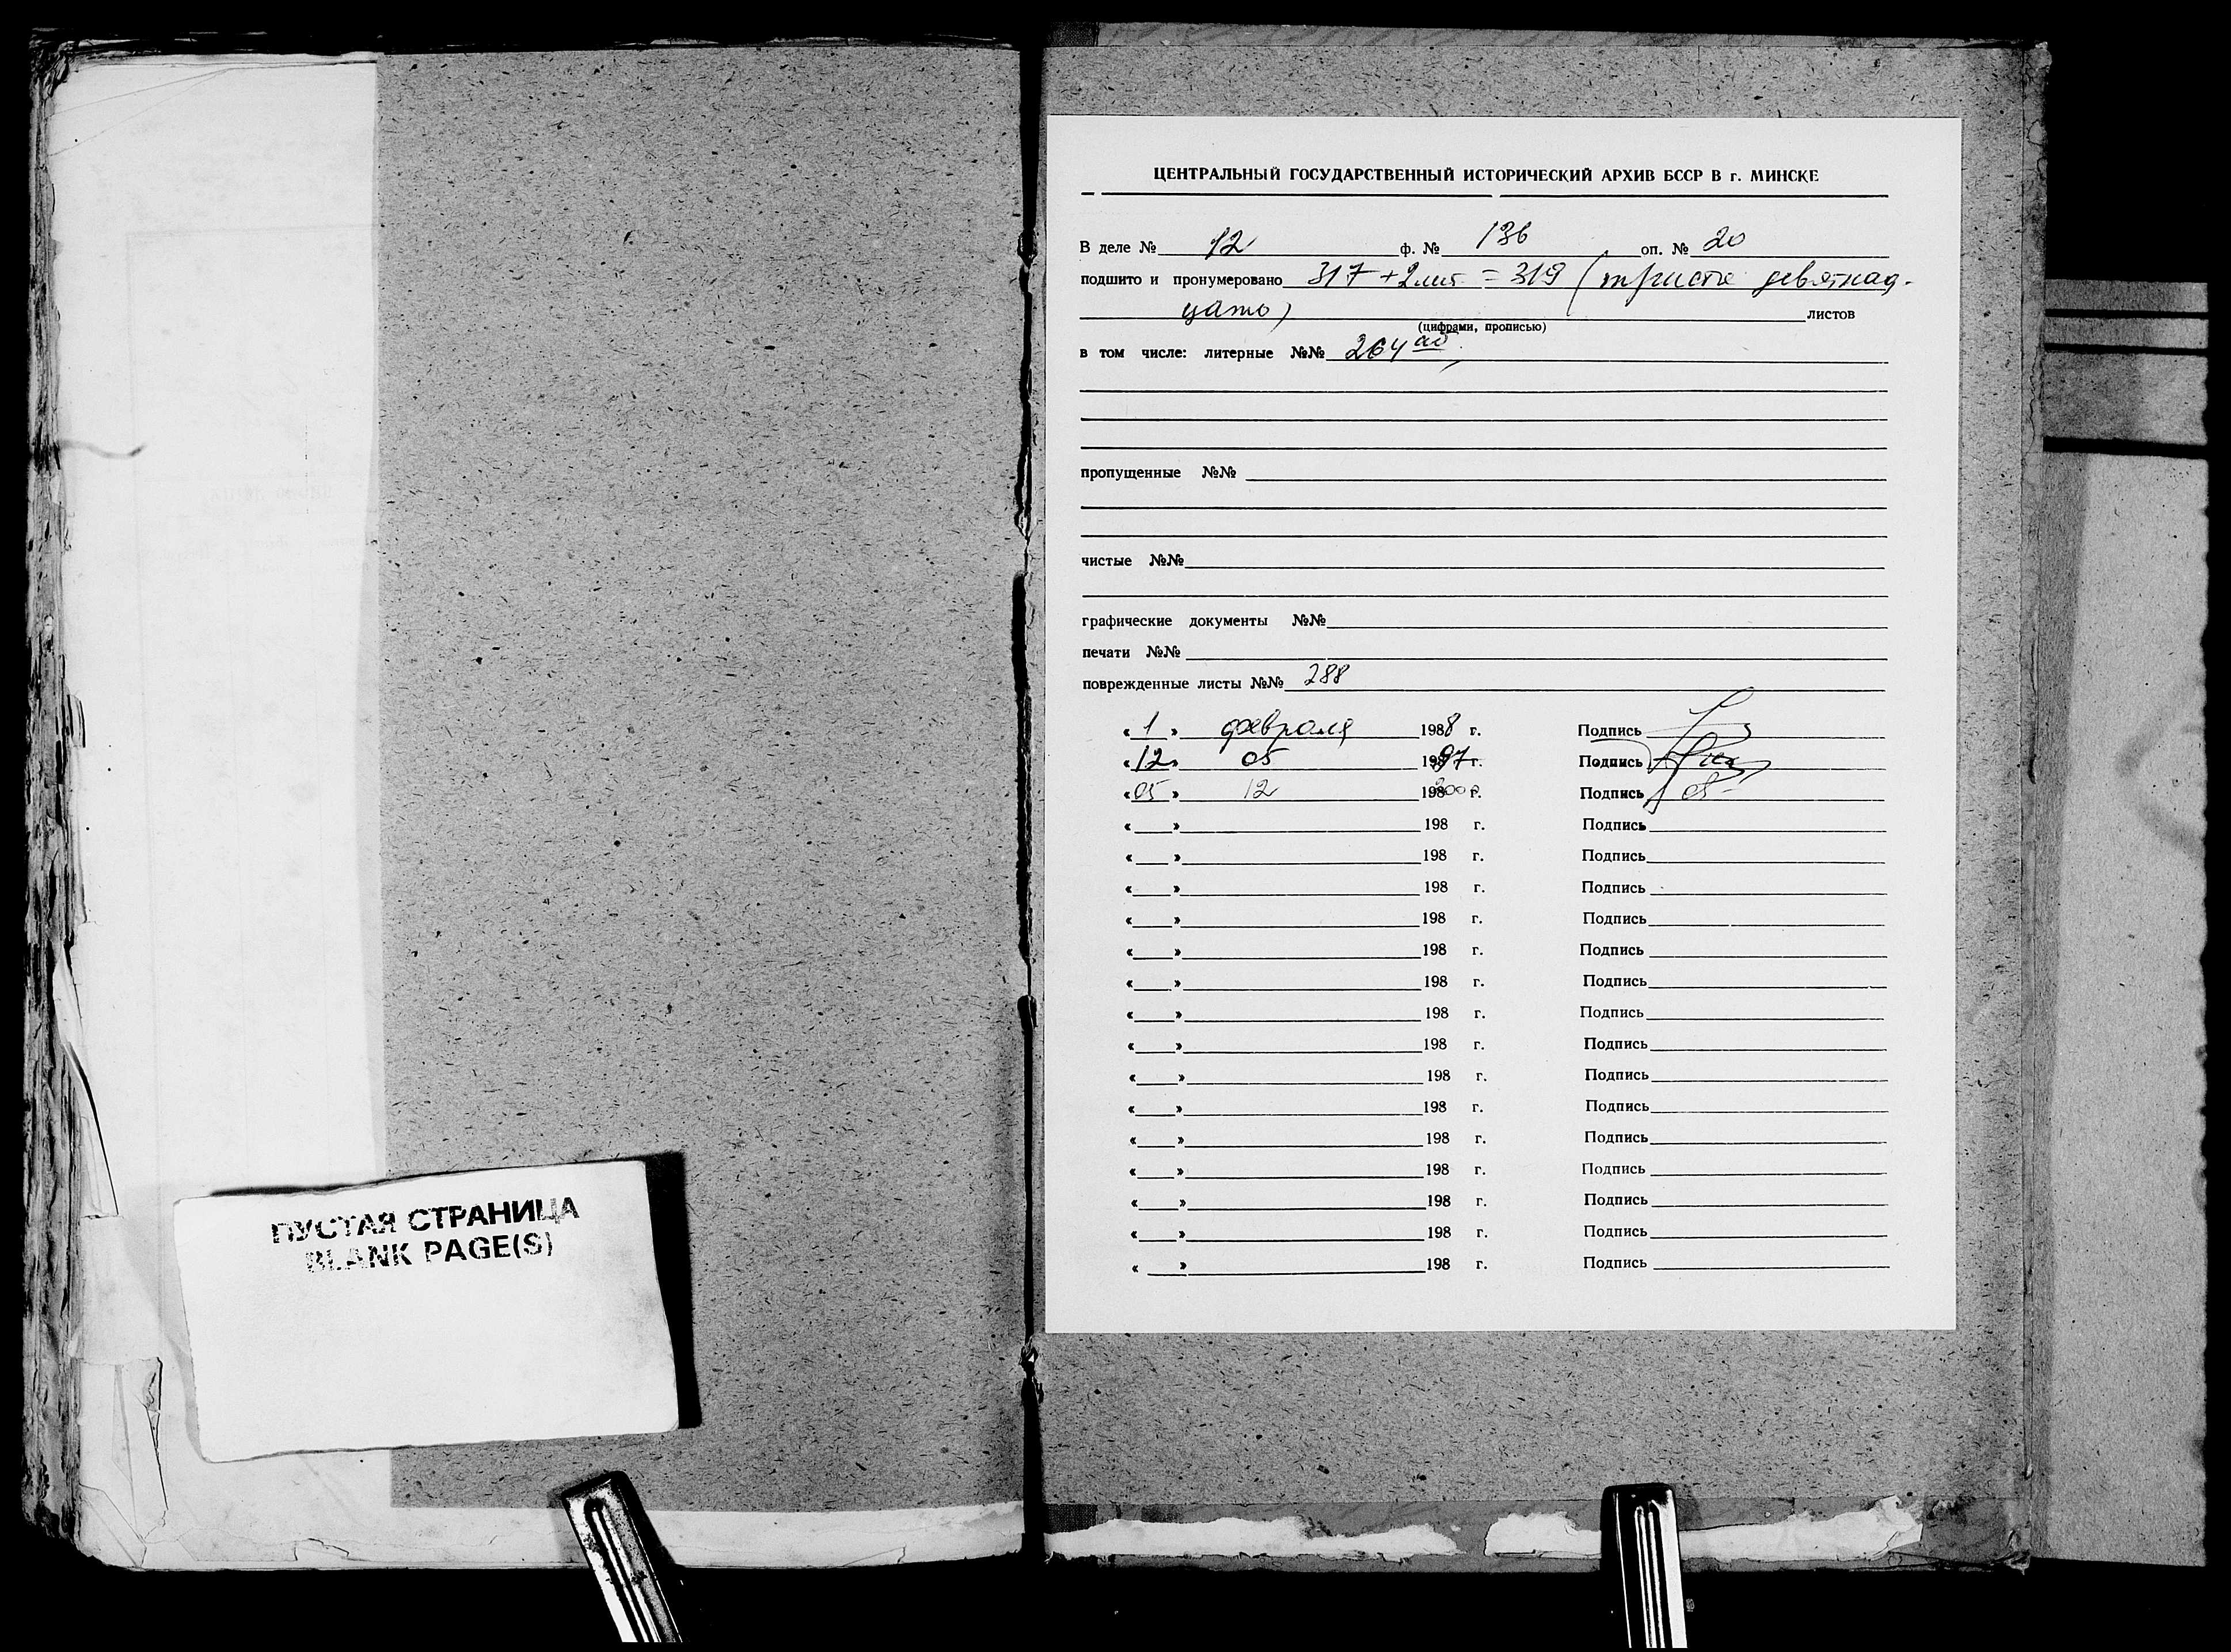 ПУСТАЯ СТРАНИЦА
BLANK PAGE(S)
ЦЕНТРАЛЬНЫЙ ГОСУДАРСТВЕННЫЙ ИСТОРИЧЕСКИЙ АРХИВ БССР В г. МИНСКЕ
В деле № 12 ф. № 136 оп. № 20
подшито и пронумеровано 317 + 2 лит. = 319 (триста девятнад-
цать) листов
(цифрами, прописью)
в том числе: литерные №№ 264 аб
пропущенные №№
чистые №№
графические документы №№
печати №№
поврежденные листы №№ 288
« 1 » февраля 1988 г. Подпись
« 12 » 05 1997 г. Подпись
« 05 » 12 2000 г. Подпись
« » 198 г. Подпись
« » 198 г. Подпись
« » 198 г. Подпись
« » 198 г. Подпись
« » 198 г. Подпись
« » 198 г. Подпись
« » 198 г. Подпись
« » 198 г. Подпись
« » 198 г. Подпись
« » 198 г. Подпись
« » 198 г. Подпись
« » 198 г. Подпись
« » 198 г. Подпись
« » 198 г. Подпись
« » 198 г. Подпись